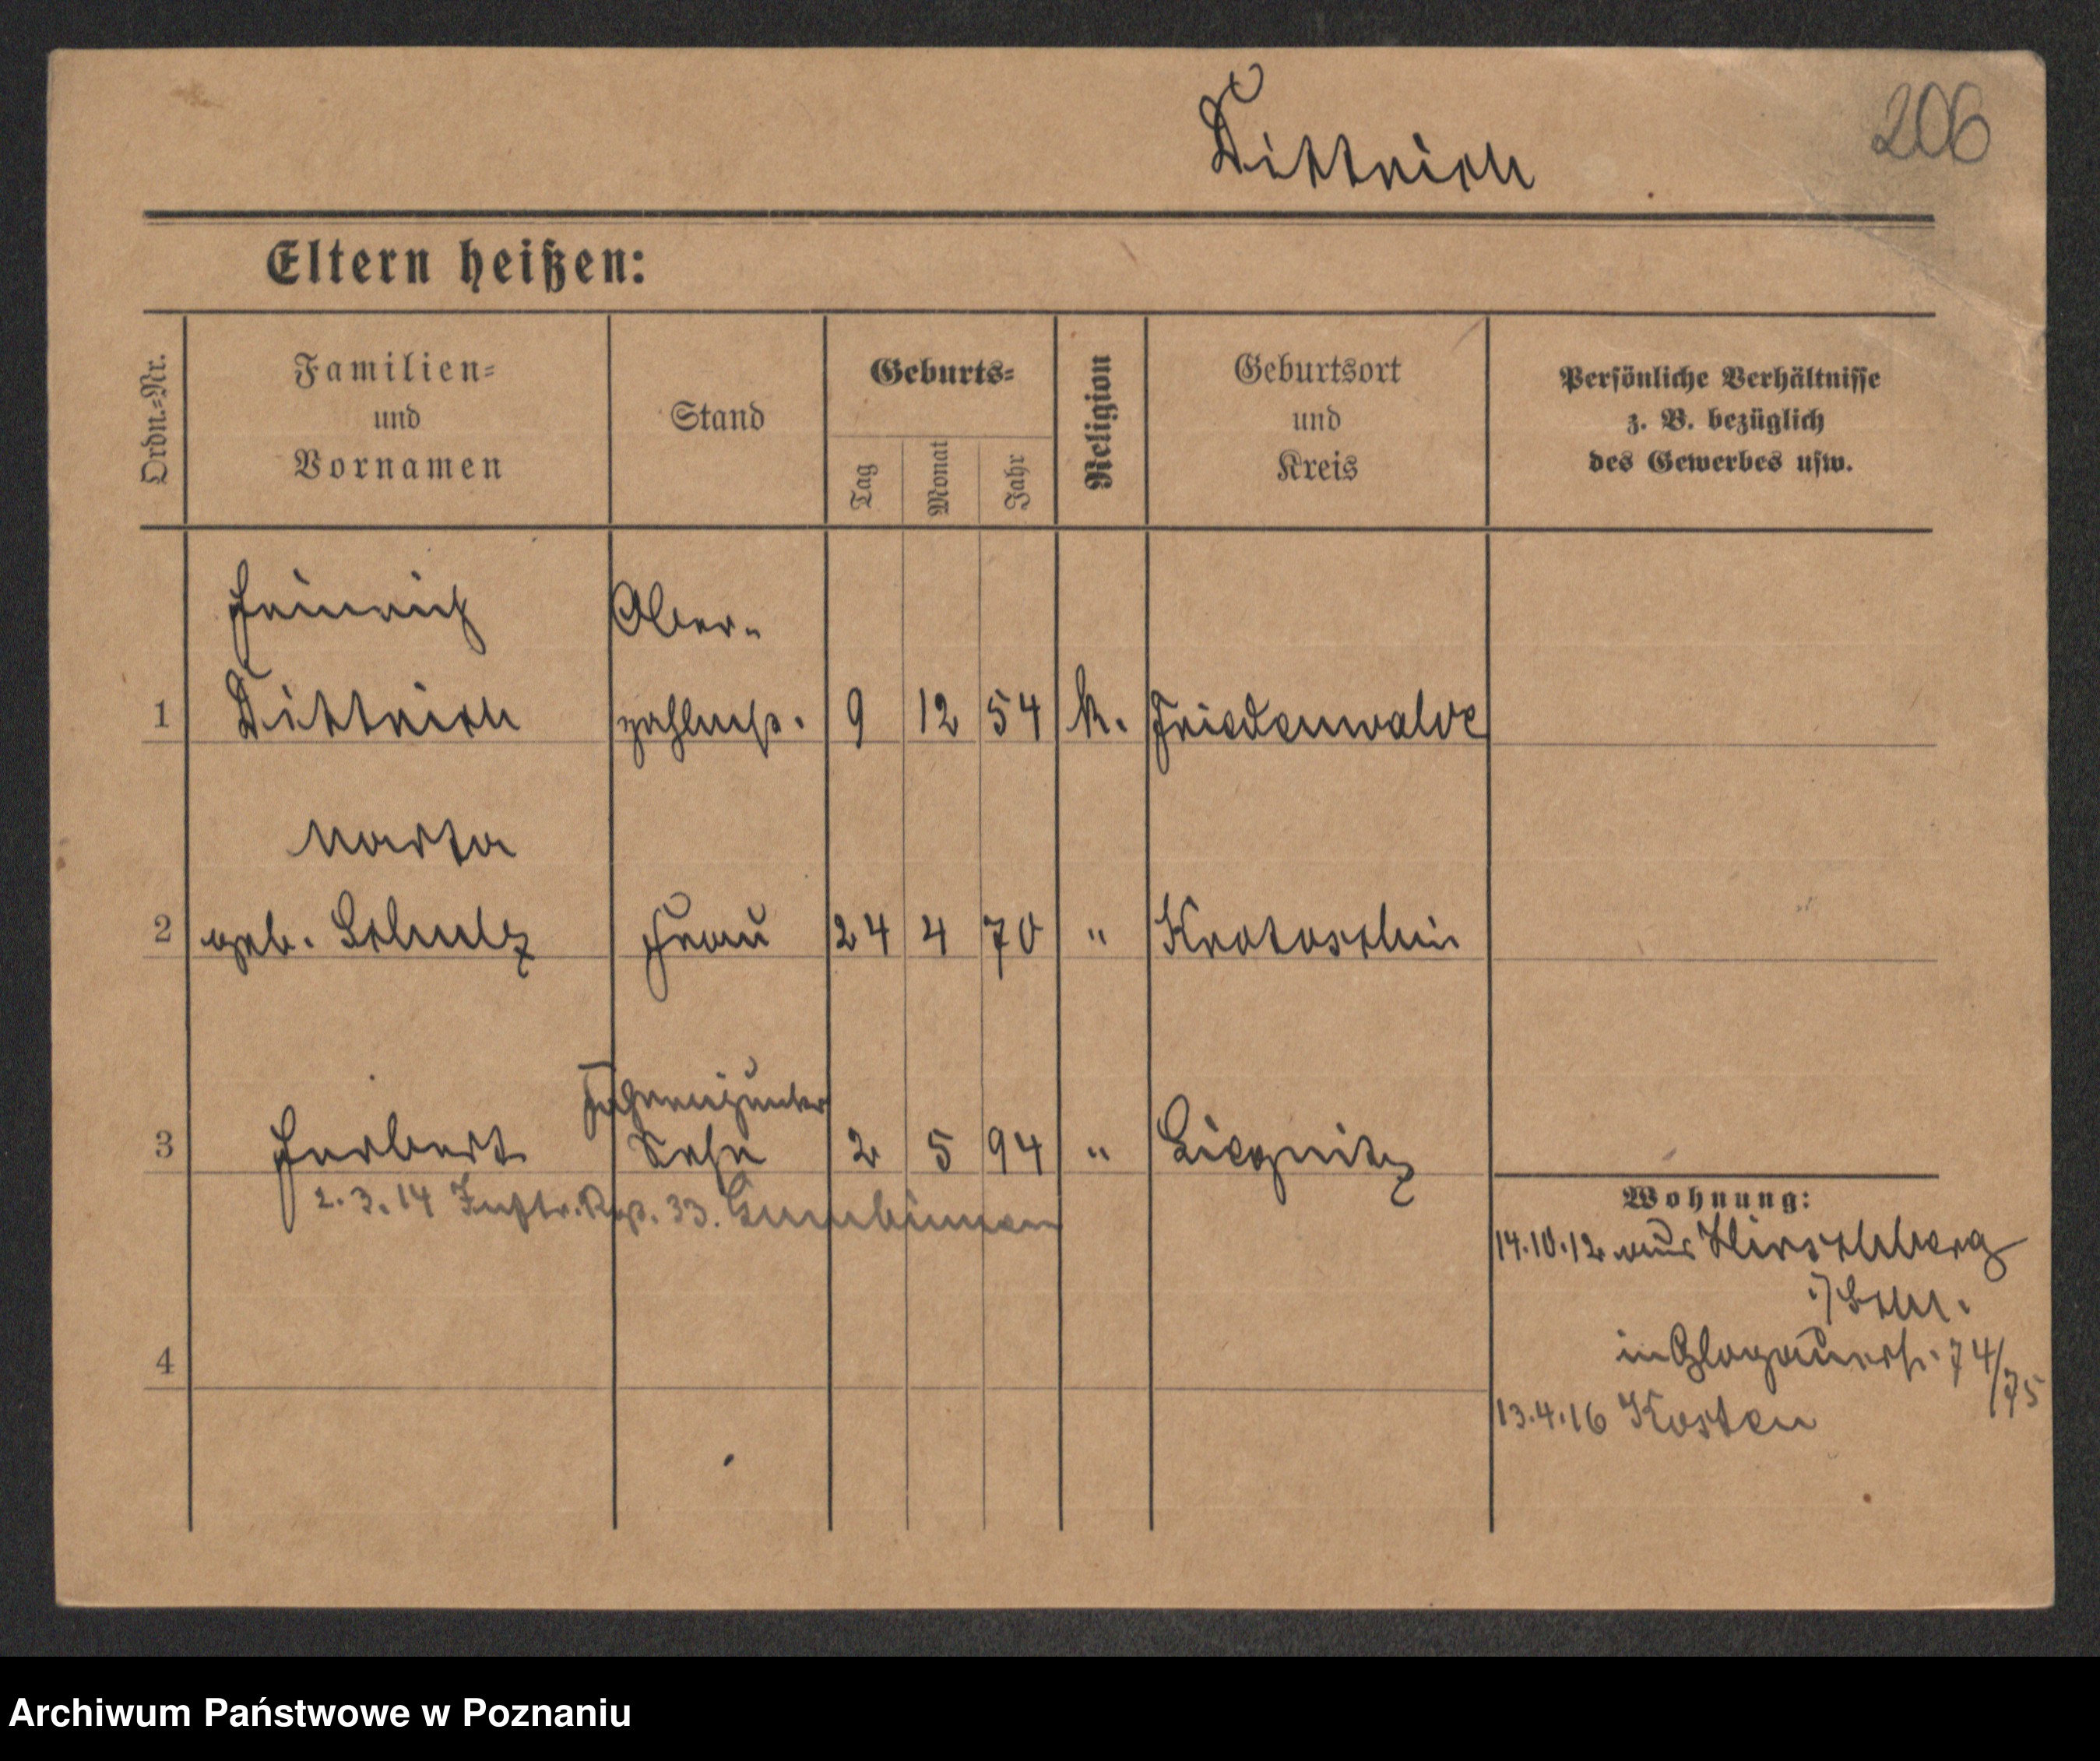 Dittrich
206
Eltern heißen:
Ordn.=Nr.
Familien=
und
Vornamen
Stand
Geburts=
Tag
Monat
Jahr
Religion
Geburtsort
und
Kreis
Persönliche Verhältnisse
z. B. bezüglich
des Gewerbes usw.
Heinrich Ober-
1 Dittrich zahlmstr. 9 12 54 k. Friedenwalde
Marta
2 geb. Schulz Frau 24 4 70 " Krotoschin
Fahnenjunker
3 Herbert Sohn 2 5 94 " Liegnitz
2.3.14 Inftr. Rgt. 33. Gumbinnen
Wohnung:
14.10.12 aus Hirschberg
i/Schl.
in Glogauerstr. 74/75
4
13.4.16 Kosten
Archiwum Państwowe w Poznaniu